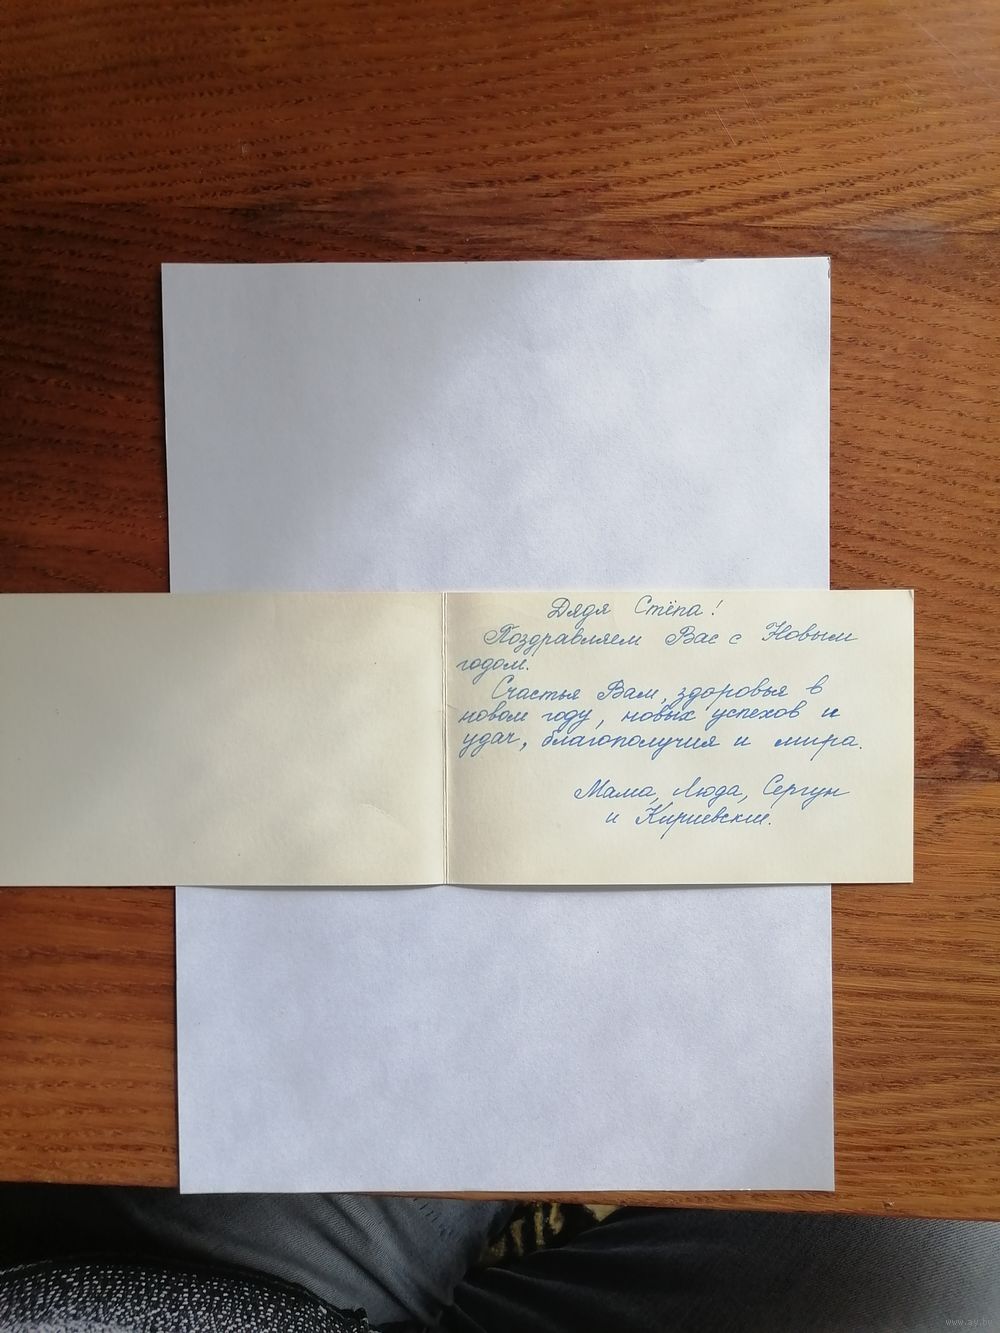 Дядя Стёпа!
Поздравляем Вас с Новым
годом.
Счастья Вам, здоровья в
новом году, новых успехов и
удач, благополучия и мира.
Мама, Люда, Сергун
и
www.ay.by